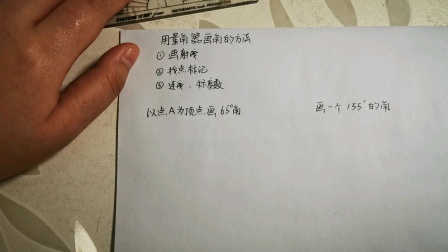 用量角器画角的方法
① 画射线
② 找点标记
③ 连线、标度数
以点A为顶点画65°角
画一个155°的角